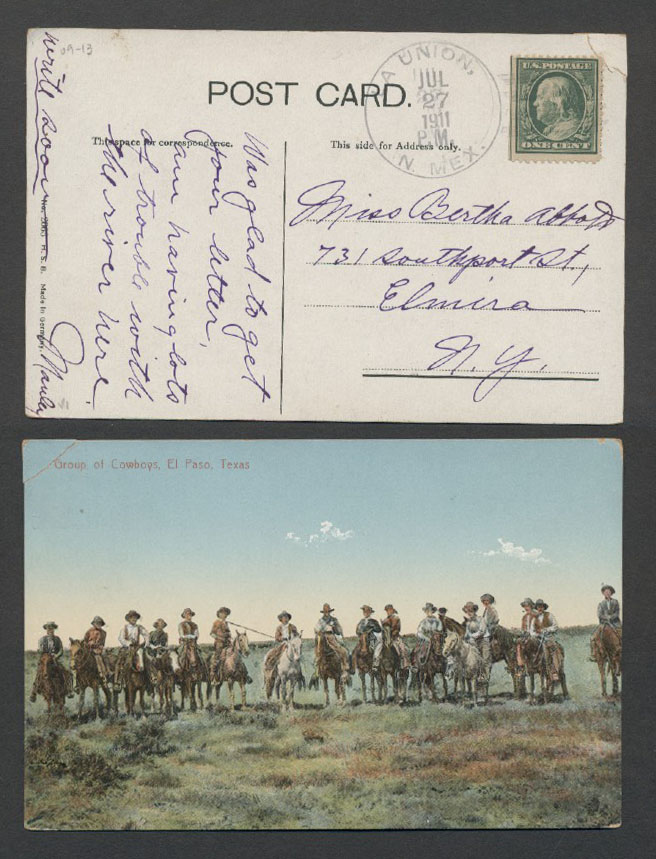 09-13
POST CARD.
This space for correspondence.
This side for Address only.
LA UNION,
JUL
27
1911
P.M.
N. MEX.
U.S. POSTAGE
ONE CENT
Was glad to get
your letter,
am having lots
of trouble with
the river here
write soon
Manley
Miss Bertha Abbott
731 Southport St.,
Elmira
N.Y.
H. S. B. Made in Germany.
Group of Cowboys, El Paso, Texas